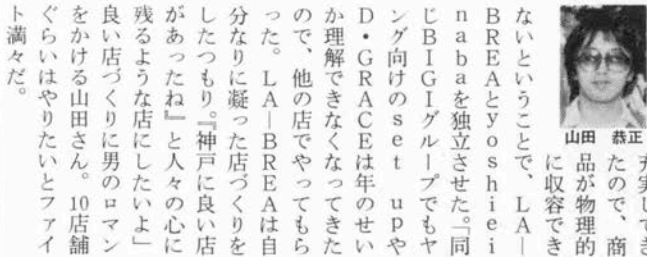 山田 恭正
充実してき
たので、商
品が物理的
に収容でき
ないということで、LA―
BREAとyoshiei
nabaを独立させた。「同
じBIGIグループでもヤ
ング向けのset upや
D・GRACEは年のせい
か理解できなくなってきた
ので、他の店でやってもら
った。LA―BREAは自
分なりに凝った店づくりを
したつもり。『神戸に良い店
があったね』と人々の心に
残るような店にしたいよ」
良い店づくりに男のロマン
をかける山田さん。10店舗
ぐらいはやりたいとファイ
ト満々だ。